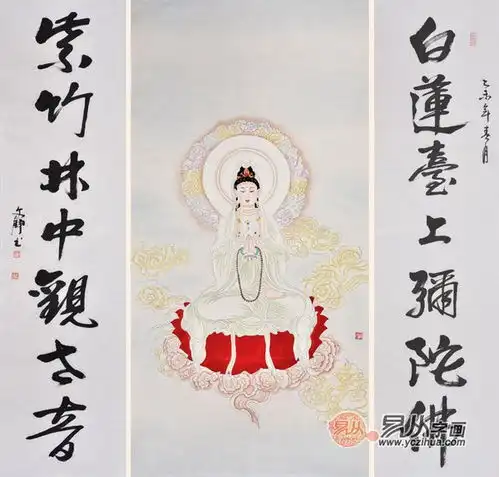 白蓮臺上彌陀佛
乙未年春月
紫竹林中觀世音
文郁書
易从字画
www.yczihua.com